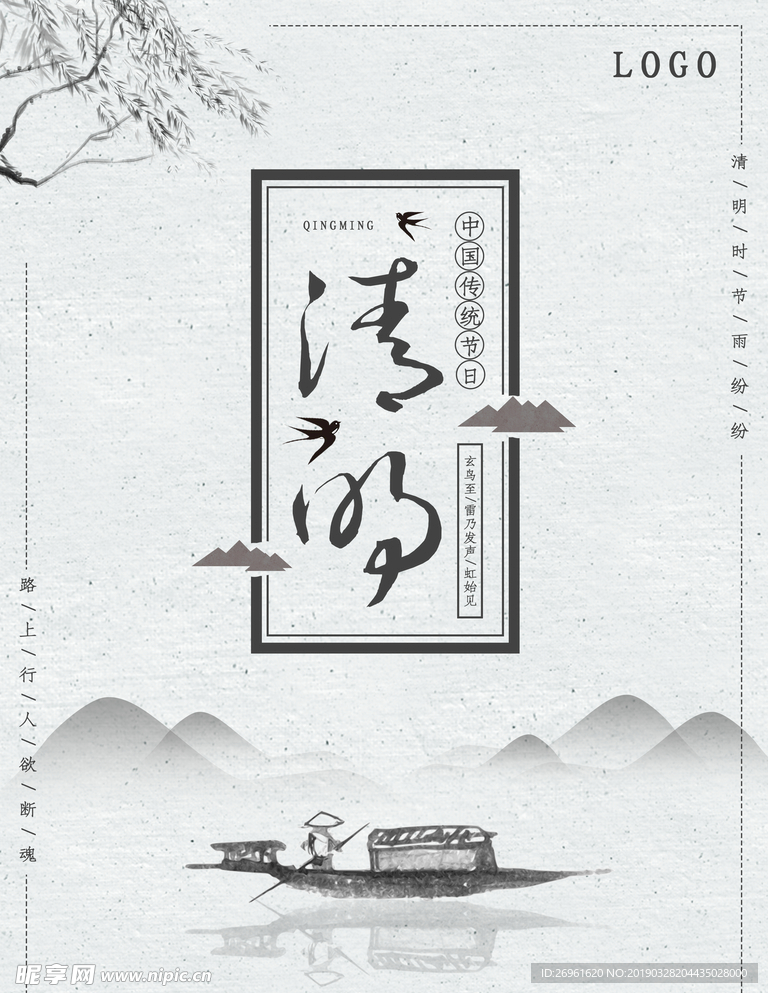 LOGO
清/明/时/节/雨/纷/纷
QINGMING
中国传统节日
清明
玄鸟至/雷乃发声/虹始见
路/上/行/人/欲/断/魂
昵享网 www.nipic.cn
ID:26961620 NO:20190328204435028000